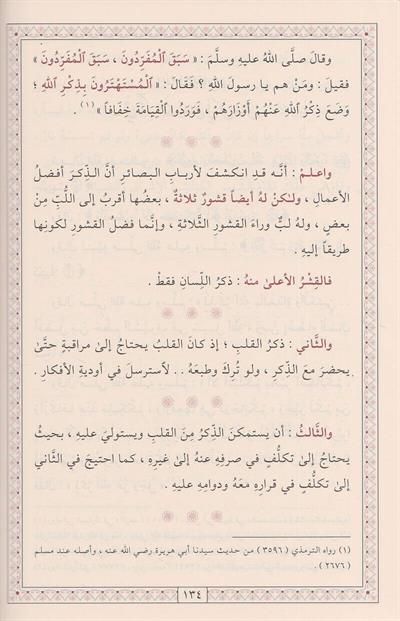 وقالَ صلَّى اللهُ عليهِ وسلَّمَ : « سَبَقَ ٱلْمُفَرِّدُونَ ، سَبَقَ ٱلْمُفَرِّدُونَ »
فقيلَ : ومَنْ هم يا رسولَ اللهِ ؟ فَقَالَ : « ٱلْمُسْتَهْتَرُونَ بِذِكْرِ ٱللهِ ؛
وَضَعَ ذِكْرُ ٱللهِ عَنْهُمْ أَوْزَارَهُمْ ، فَوَرَدُوا ٱلْقِيَامَةَ خِفَافاً » (١) .
واعلمْ : أنَّه قدِ انكشفَ لأربابِ البصائرِ أنَّ الذِّكرَ أفضلُ
الأعمالِ ، ولكنْ لهُ أيضاً قشورٌ ثلاثةٌ ، بعضُها أقربُ إلى اللُّبِّ مِنْ
بعضٍ ، ولهُ لبٌّ وراءَ القشورِ الثَّلاثةِ ، وإنَّما فضلُ القشورِ لكونِها
طريقاً إليهِ .
فالقِشْرُ الأعلىٰ منهُ : ذكرُ اللِّسانِ فقطْ .
والثَّاني : ذكرُ القلبِ ؛ إذْ كانَ القلبُ يحتاجُ إلىٰ مراقبةٍ حتَّىٰ
يحضرَ معَ الذِّكرِ ، ولو تُركَ وطبعَهُ .. لاسترسلَ في أوديةِ الأفكارِ .
والثَّالثُ : أن يستمكنَ الذِّكرُ مِنَ القلبِ ويستوليَ عليهِ ، بحيثُ
يحتاجُ إلىٰ تكلُّفٍ في صرفِهِ عنهُ إلىٰ غيرِهِ ، كما احتيجَ في الثَّاني
إلىٰ تكلُّفٍ في قرارِهِ معَهُ ودوامِهِ عليهِ .
(١) رواه الترمذي ( ٣٥٩٦ ) من حديث سيدنا أبي هريرة رضي الله عنه ، وأصله عند مسلم
( ٢٦٧٦ ) .
١٣٤